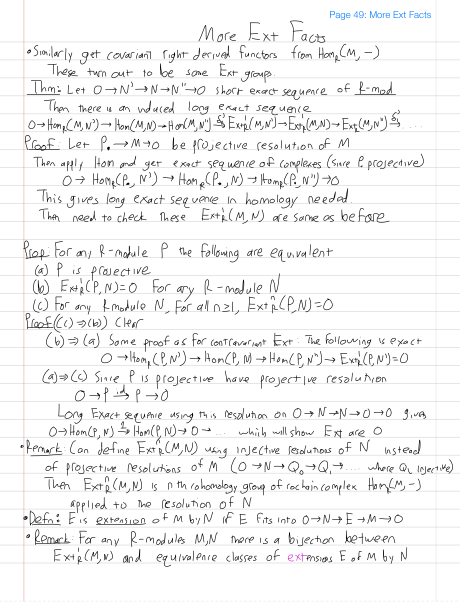 Page 49: More Ext Facts
More Ext Facts
• Similarly get covariant right derived functors from Hom_R(M, −)
These turn out to be same Ext groups.
Thm: Let 0→N'→N→N''→0 short exact sequence of R-mod
Then there is an induced long exact sequence
0→Hom_R(M,N')→Hom(M,N)→Hom(M,N'')→Ext¹_R(M,N')→Ext¹_R(M,N)→Ext¹_R(M,N'')→...
Proof: Let P.→M→0 be projective resolution of M
Then apply Hom and get exact sequence of complexes (since P. projective)
0→Hom_R(P., N')→Hom_R(P., N)→Hom_R(P., N'')→0
This gives long exact sequence in homology needed.
Then need to check these Extⁿ_R(M,N) are same as before
Prop: For any R-module P the following are equivalent
(a) P is projective
(b) Ext¹_R(P,N)=0 for any R-module N
(c) For any R module N, for all n≥1, Extⁿ_R(P,N)=0
Proof: (c)⇒(b)) Clear
(b)⇒(a) Same proof as for contravariant Ext: The following is exact
0→Hom_R(P,N')→Hom(P,N)→Hom(P,N'')→Ext¹_R(P,N')=0
(a)⇒(c) Since P is projective have projective resolution
0→P id→ P→0
Long Exact sequence using this resolution on 0→N→N→0→0 gives
0→Hom(P,N)→Hom(P,N)→0→... which will show Ext are 0
• Remark: Can define Extⁿ_R(M,N) using injective resolutions of N instead
of projective resolutions of M (0→N→Q₀→Q₁→.... where Qᵢ injective)
Then Extⁿ_R(M,N) is nth cohomology group of cochain complex Hom_R(M,−)
applied to the resolution of N
• Defn: E is extension of M by N if E fits into 0→N→E→M→0
• Remark: For any R-modules M,N there is a bijection between
Ext¹_R(M,N) and equivalence classes of extensions E of M by N